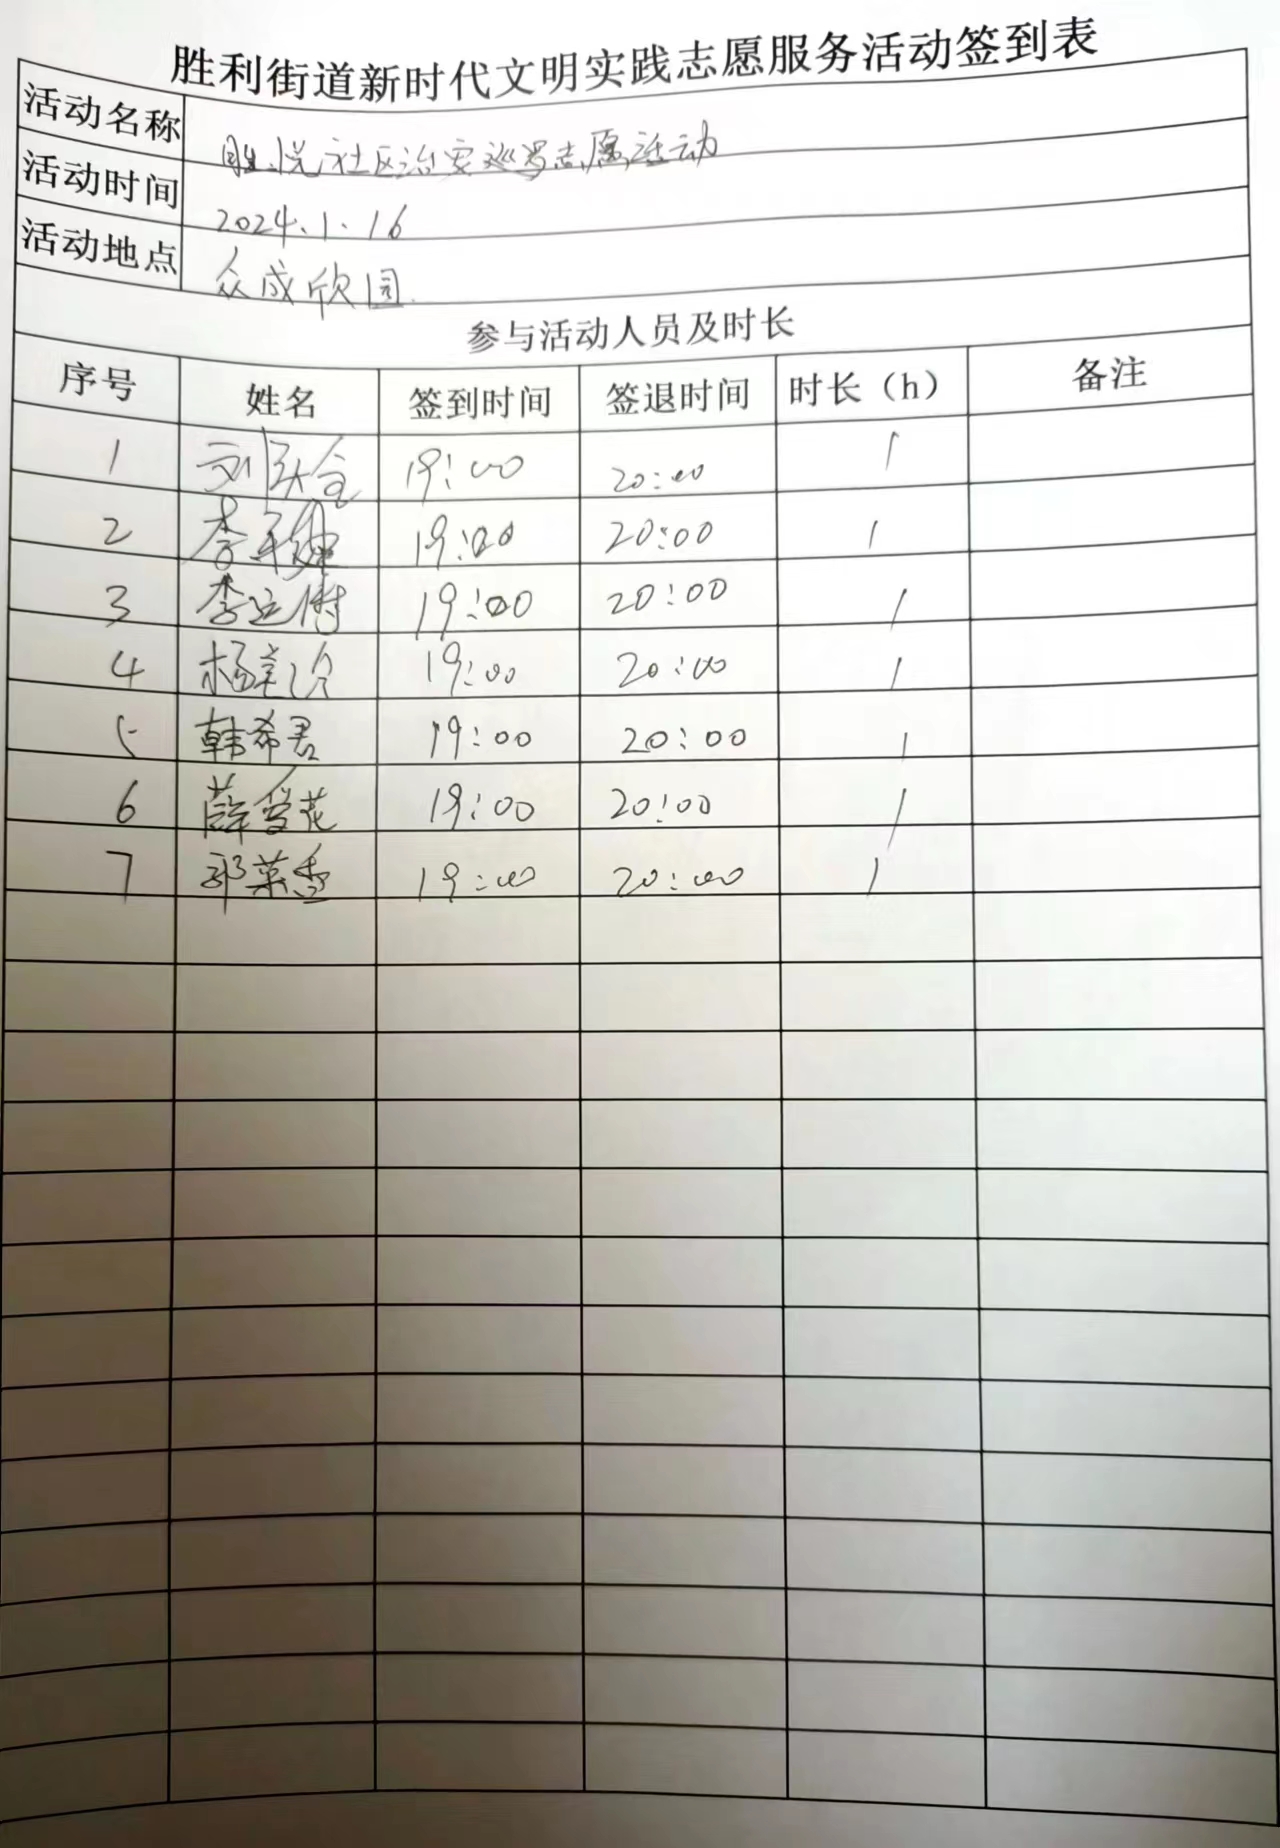 胜利街道新时代文明实践志愿服务活动签到表
活动名称 胜悦社区治安巡逻志愿活动
活动时间 2024.1.16
活动地点 众成欣园
参与活动人员及时长
序号 姓名 签到时间 签退时间 时长（h） 备注
1 19:00 20:00 1
2 19:00 20:00 1
3 19:00 20:00 1
4 19:00 20:00 1
5 韩希君 19:00 20:00 1
6 薛爱花 19:00 20:00 1
7 郭菜香 19:00 20:00 1